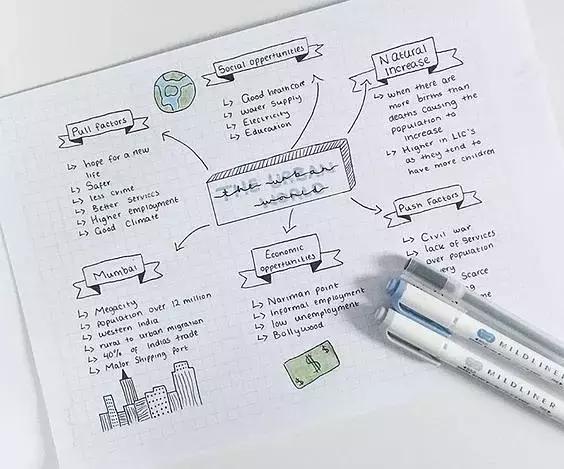 Social opportunities
↳ Good healthcare
↳ water supply
↳ Electricity
↳ Education
Natural
Increase
↳ when there are
more births than
deaths causing the
population to
increase
↳ Higher in LIC's
as they tend to
have more children
Pull factors
↳ hope for a new
life
↳ Safer
↳ less crime
↳ Better services
↳ Higher employment
↳ Good Climate
THE URBAN
WORLD
the urban
world
Push Factors
↳ Civil war
↳ lack of services
over population
Scarce
Mumbai
↳ Megacity
↳ population over 12 million
↳ western India
↳ rural to urban migration
↳ 40% of Indias trade
↳ Major Shipping port
Economic
opportunities
↳ Nariman point
↳ Informal employment
↳ low unemployment
↳ Bollywood
$ $ $
MILDLINER
MILDLINER